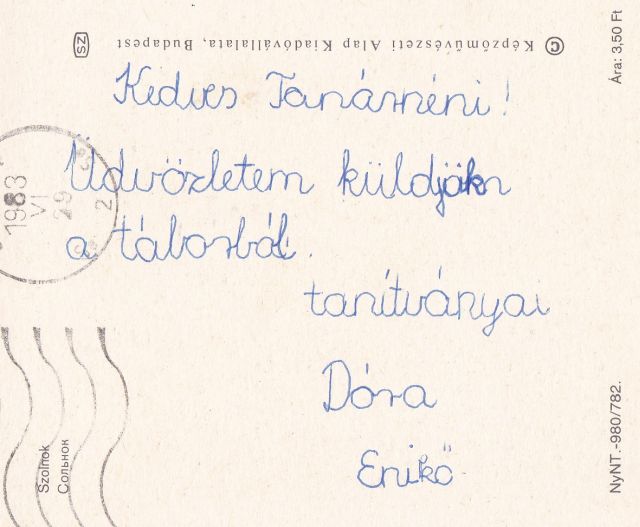 SZ
© Képzőművészeti Alap Kiadóvállalata, Budapest
Ára: 3,50 Ft
Kedves Tanárnéni!
Üdvözletem küldjük
a táborból.
tanítványai
Dóra
Enikő
1983
VI
29
2
Szolnok
Сольнок
NyNT.-980/782.